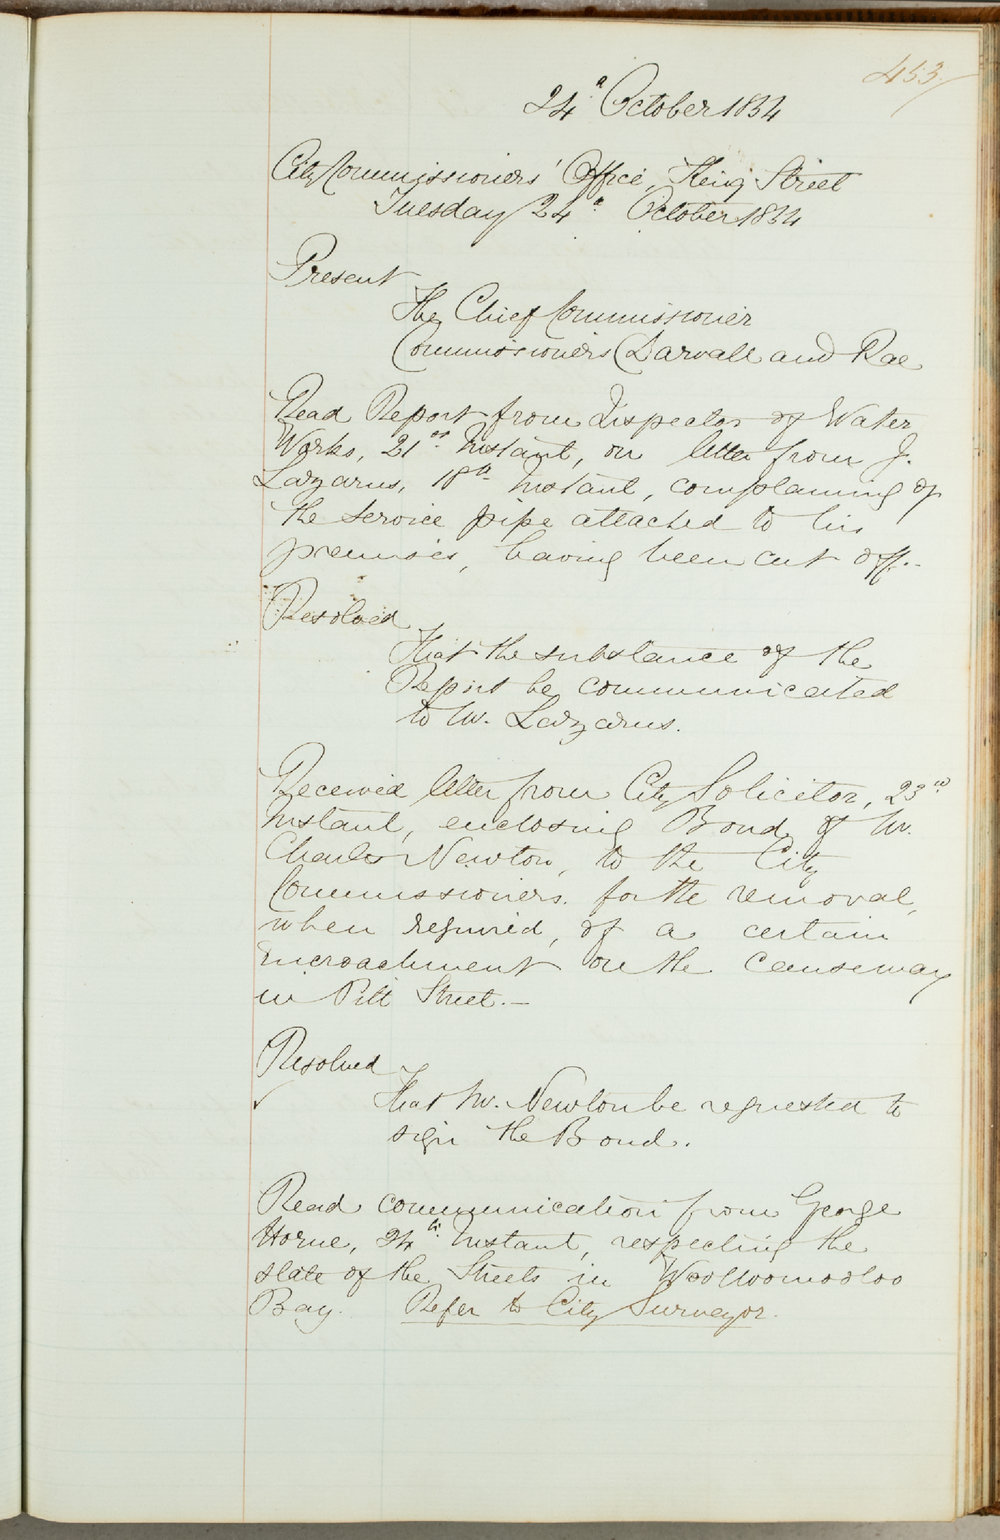 453
24th October 1854
City Commissioners' Office, King Street
Tuesday 24th October 1854
Present
The Chief Commissioner
Commissioners Darvall and Rae
Read Report from Inspector of Water
Works, 21st Instant, on letter from J.
Lazarus, 18th Instant, complaining of
the service pipe attached to his
premises, having been cut off.-
Resolved
That the substance of the
Report be communicated
to Mr. Lazarus.
Received letter from City Solicitor, 23rd
Instant, enclosing Bond of Mr.
Charles Newton, to the City
Commissioners. for the removal,
when required, of a certain
encroachment on the Causeway
in Pitt Street.-
Resolved
That Mr. Newton be requested to
sign the Bond.
Read communication from George
Horne, 24th Instant, respecting the
state of the Streets in Woolloomooloo
Bay. Refer to City Surveyor.